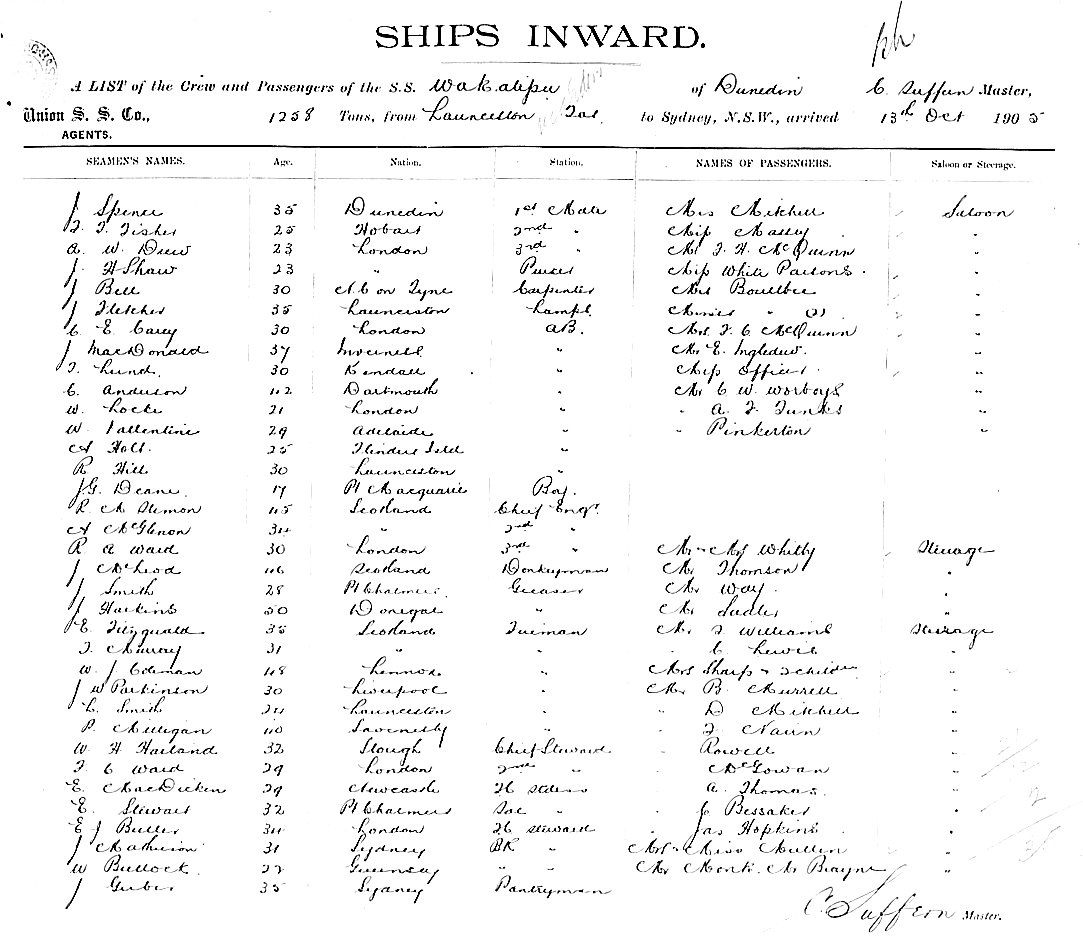 SHIPS INWARD.
A LIST of the Crew and Passengers of the S.S. Wakatipu of Dunedin C. Suffern Master,
Union S. S. Co., 1258 Tons, from Launceston Tas to Sydney, N.S.W., arrived 13th Oct 1905
AGENTS.
SEAMEN'S NAMES. Age. Nation. Station. NAMES OF PASSENGERS. Saloon or Steerage.
J Spence 35 Dunedin 1st Mate Mrs Mitchell Saloon
F. F. Fisher 25 Hobart 2nd " Miss Massy "
A. W. Drew 23 London 3rd " Mr F. H. McQuinn "
J. H Shaw 23 " Purser Miss White Parsons "
J Bell 30 N.C on Tyne Carpenter Mrs Boultbee "
J Fletcher 35 Launceston Lampt. Misses " "
C. E. Carey 30 London AB. Mrs. F. C. McQuinn "
J MacDonald 37 Inverness " Mr E. Ingledew "
F. Lund 30 Kendall " Miss Officer "
C. Anderson 42 Dartmouth " Mr C W. Worboys "
W. Locke 21 London " " A. F. Funks "
W. Vallentine 29 Adelaide " " Pinkerton "
A Holt 25 Flinders Isld "
R Hill 30 Launceston "
J.G. Deane 17 Pt Macquarie Boy.
R. M Stemon 45 Scotland Chief Engr.
A McGlenon 34 " 2nd "
R A Ward 30 London 3rd " Mr & Mrs Whitby Steerage
J McLeod 46 Scotland Donkeyman Mr Thomson "
J Smith 28 Pt Chalmers Greaser Mr Way "
J Harkins 50 Donegal " Mr Sadler "
E. Fitzgerald 35 Scotland Fireman Mr J Williams Steerage
F. Murray 31 " " " C. Lewis "
W. J Coleman 48 Lennox " Mrs Sharp & "
J W Parkinson 30 Liverpool " Mr B. Murrell "
L. Smith 24 Launceston " " D Mitchell "
P. Milligan 40 " " Nairn "
W H Harland 32 Slough Chief Steward " Rowell "
F C Ward 29 London 2nd " " McGowan "
E. MacDicken 29 Newcastle " A. Thomas "
E. Stewart 32 Pt Chalmers " " J Bessaker "
E J Butler 34 London steward " Jas Hopkins "
J Matheson 31 Sydney BK " Mrs & Miss Mullen "
W Bullock 22 Guernsey " " Mr Monk. Mr Brayne "
J Guber 35 Sydney Pantryman
C. Suffern Master.